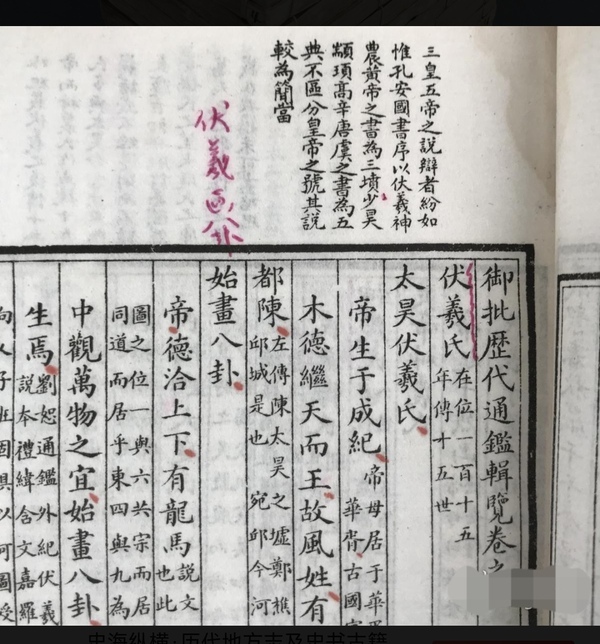 三皇五帝之說辯者紛如
惟孔安國書序以伏羲神
農黃帝之書為三墳少昊
顓頊高辛唐虞之書為五
典不區分皇帝之號其說
較為簡當
伏羲画八卦
御批歷代通鑑輯覽卷之
伏羲氏
在位一百十五
年傳十五世
太昊伏羲氏
帝生于成紀
帝母居于華
華胥古國
木德繼天而王故風姓有
都陳
左傳陳太昊之墟鄭樵
邱城是也 宛邱今河
始畫八卦
帝德洽上下有龍馬
說文
也此
圖之位一與六共宗而居
同道而居乎東四與九為
中觀萬物之宜始畫八卦
生焉
劉恕通鑑外紀伏羲
說本禮緯含文嘉羅
史海纵横·历代地方志及史书古籍